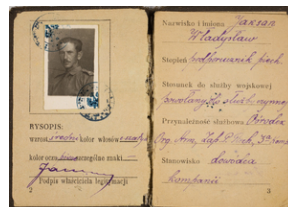 RYSOPIS:
wzrost średni kolor włosów
kolor oczu szczególne znaki —
Podpis właściciela legitymacji
2
Nazwisko i imiona Jaxzan
Władysław
Stopień podporucznik piech
Stosunek do służby wojskowej
powołany do służb. czynnej
Przynależność służbowa Ośrodek
Org. Arm.
Stanowisko dowódca
kompanii
3